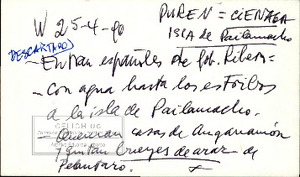 W 25-4-90
PUREN = CIENAGA
ISLA de Pailamacho
DESCARTADO
- Entran españoles de Gob. Ribera =
- Con agua hasta los estribos
a la isla de Pailamacho.
- Queman casas de Anganamón
y quitan bueyes de arar de
Pelantaro.